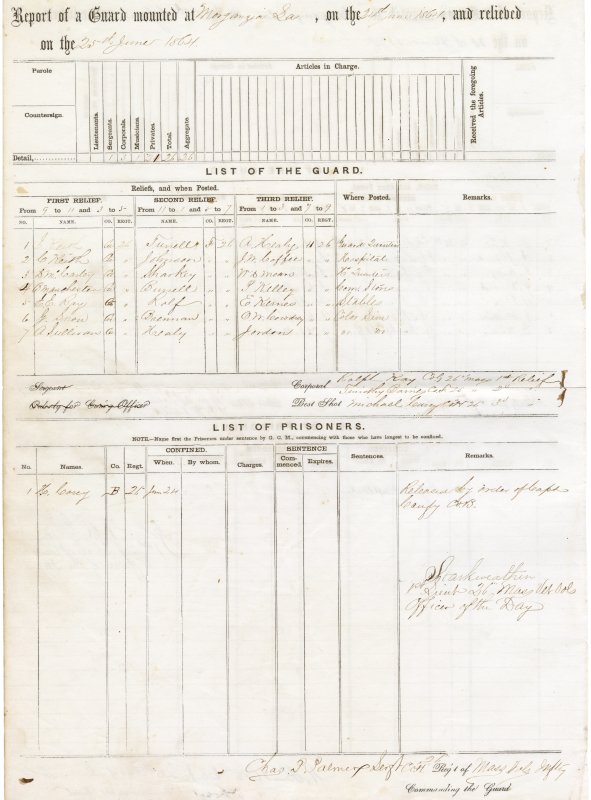 Report of a Guard mounted at Morganzia La, on the 24th June 1864, and relieved
on the 25th June 1864
Parole
Countersign.
Lieutenants.
Sergeants.
Corporals.
Musicians.
Privates.
Total.
Aggregate.
Articles in Charge.
Received the foregoing Articles.
Detail,
LIST OF THE GUARD.
Reliefs, and when Posted.
Where Posted.
Remarks.
FIRST RELIEF.
SECOND RELIEF.
THIRD RELIEF.
From 9 to 11 and 3 to 5
From 11 to 1 and 5 to 7
From 1 to 3 and 7 to 9
NO. NAME. CO. REGT. NAME. CO. REGT. NAME. CO. REGT.
1 Keith 26 26 A Healy H 26 Guard Quarters
2 C Keith " Johnson " J.M. Coffee " Hospital
3 " Sharkey " W D Moore " Hd Quarters
4 P Manchester " " P Kelley " Com Stores
5 " Rolf " E Kernes " Stables
6 " Brennan " " Color Line
7 A Sullivan " Healy " Jordon " " "
Sergeant
Corporal Ralph Hay Co G 26 Mass 1st Relief
Timothy 26 " 2d "
Orderly for Com'g Officer
Best Shot Michael 26 3d "
LIST OF PRISONERS.
NOTE.—Name first the Prisoners under sentence by G. C. M., commencing with those who have longest to be confined.
No. Names. Co. Regt. CONFINED. When. By whom. Charges. SENTENCE Commenced. Expires. Sentences. Remarks.
1 Corey B 26 Jun 24 Released by order of Capt
Co B.
Starkweather
1st Lieut 26th Mass Vet Vols
Officer of the Day
Chas D. Palmer Sergt Co H Reg't of Mass Vols Infty
Commanding the Guard